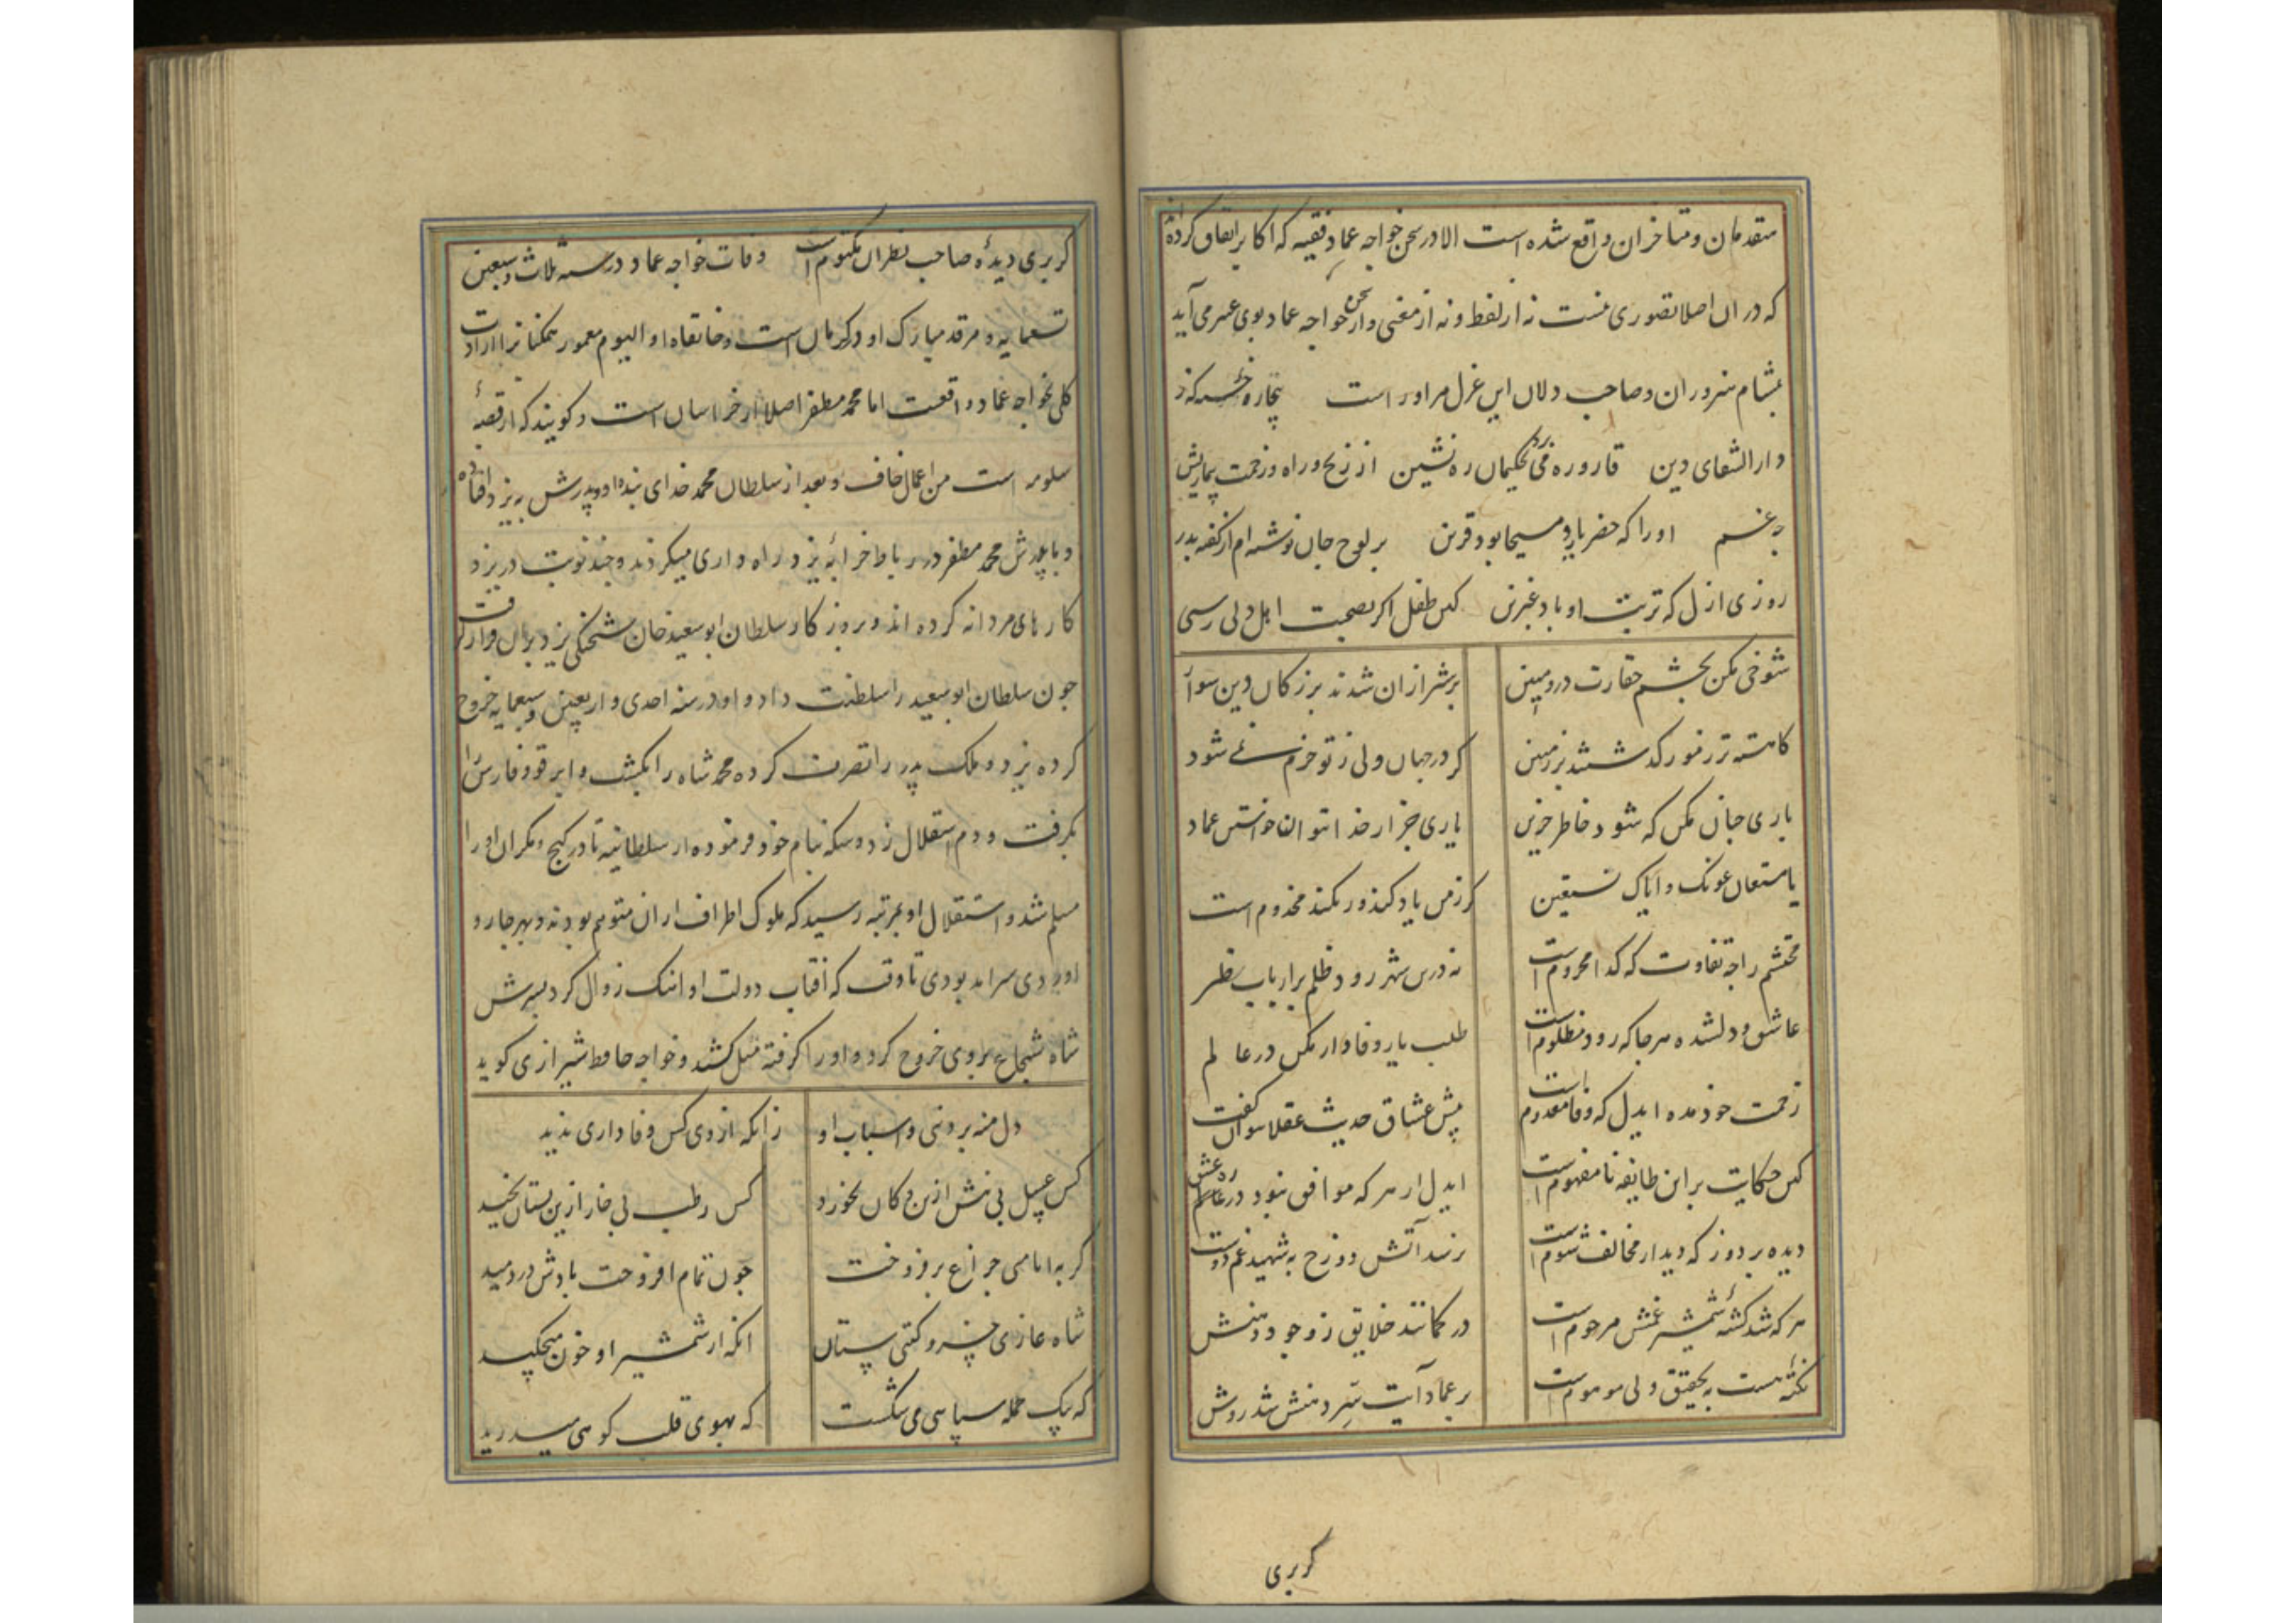 متقدمان و متاخران واقع شده است الا در سخن خواجه عماد فقیه که اکابر اتفاق کرده اند
که در ان اصلا فتوری نیست نه از لفظ و نه از معنی و از سخن خواجه عماد بوی عبیر می آید
بمشام هنروران و صاحب دلان این غزل مر او راست بیچاره خسته که ز
دار الشفای دین قاروره می برد بحکیمان ره نشین از رنج و راه و زحمت
چه غم او را که خضر یار و مسیحا بود قرین بر لوح جان نوشته ام از کفته پدر
روزی ازل که تربت او باد عنبرین کین طفل اکر بصحبت اهل دلی رسی
شوخی مکن بچشم حقارت درو مبین بر شیر ازان شدند بزرکان دین سوار
کاهسته تر ز مور کذشتند بر زمین کر در جهان دلی ز تو خرم نمی شود
باری چنان مکن که شود خاطر حزین یاری جز از خدا نتوان خواستن عماد
یا مستعان عونک و ایاک نستعین کر ز من یاد کند ور نکند مخدوم است
محتشم را چه تفاوت که کدا محروم است نه درین شهر رود ظلم بر ارباب نظر
عاشق و دلشده هر جا که رود مظلوم است طلب یار وفادار مکن در عالم
زحمت خود مده ایدل که وفا معدوم است پیش عشاق حدیث عقلا نتوان کفت
کین حکایت بر این طایفه نا مفهوم است ایدل ار هر که موافق نبود در ره عشق
دیده بر دوز که دیدار مخالف شوم است نرسد آتش دوزخ به شهید غم دوست
هر که شد کشته شمشیر غمش مرحوم است در کمانند خلایق ز وجود دهنش
نکته هست به تحقیق ولی موهوم است بر عماد آیت سر دهنش شد روشن
کر بری
کر بری دیده صاحب نظران مکتوم است وفات خواجه عماد در سنه ثلاث و سبعین
تسعمایه و مرقد مبارک او در کرمان است و خانقاه او الیوم معمور همکنانرا ارادت
کلی بخواجه عماد واقعست اما محمد مظفر اصلا از خراسان است و کویند که از قصبه
سلومه است من اعمال خاف و بعد از سلطان محمد خدای بنده او و پدرش به یزد افتاده
و با پدرش محمد مظفر در رباط خرابه یزد راه داری میکردند و چند نوبت در یزد
کارهای مردانه کرده اند و بروزکار سلطان ابو سعید خان شحنکی یزد بران قرار کرفت
چون سلطان ابو سعید را سلطنت داد و او در سنه احدی و اربعین و سبعمایه خروج
کرده یزد و ملک پدر را تصرف کرده محمد شاه را بکشت و ابرقوه و فارس را
بکرفت و دم استقلال زد و سکه بنام خود فرموده از سلطانیه تا در کیج و مکران او را
مسلم شد و استقلال او بمرتبه رسید که ملوک اطراف از ان متوهم بودند و بهر جا رو
اوردی سرامد بودی تا وقت که افتاب دولت او اهنک زوال کرد پسرش
شاه شجاع بر وی خروج کرد و او را کرفته میل کشید و خواجه حافظ شیرازی کوید
دل منه بر دنیی و اسباب او زانکه از وی کس وفاداری ندید
کس عسل بی نیش ازین دکان نخورد کس رطب بی خار ازین بستان نچید
کر به ایامی چراغ بر فروخت چون تمام افروخت بادش دردمید
شاه غازی خسرو کیتی ستان انکه از شمشیر او خون میچکید
که بیک حمله سپاهی می شکست که بهوی قلب کوهی میدرید